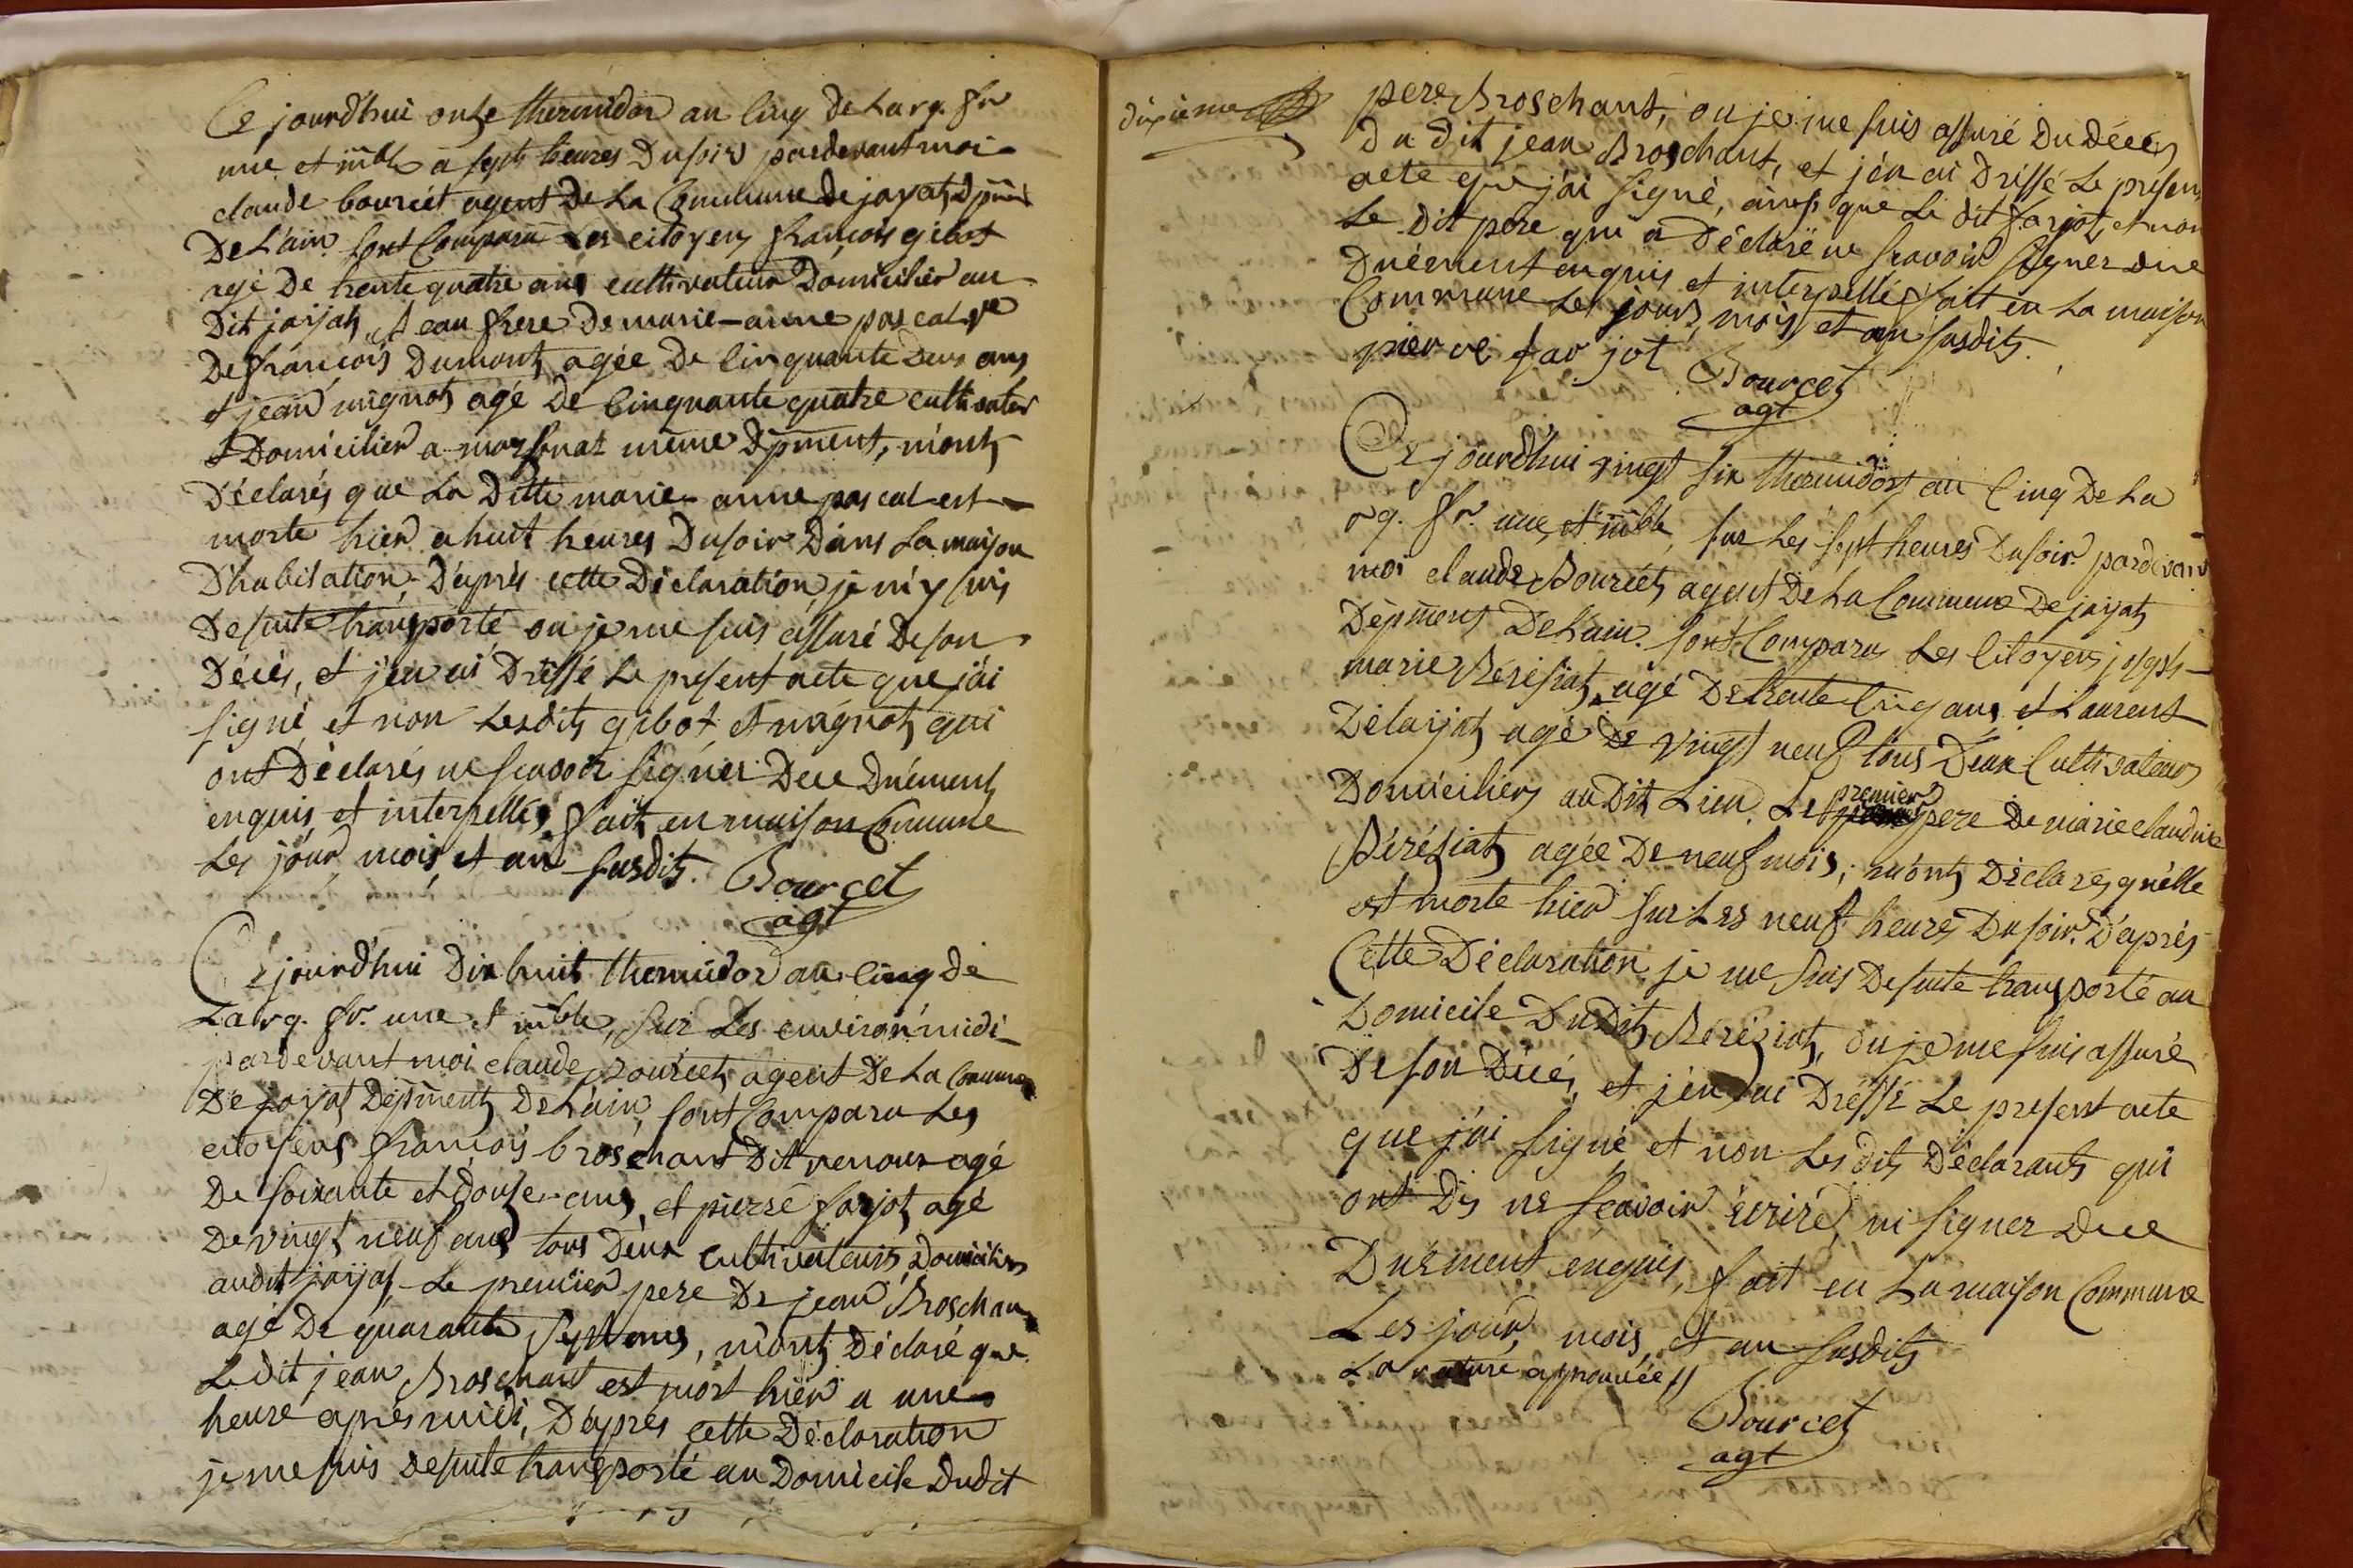 Ce jourd'hui onze thermidor an cinq de la rq. fr
une et indble a sept heures du soir pardevant moi
claude bourcét agent de la Commune de jayat, dpmt
de L'ain. sont Comparu Les citoyens françois gibot
agé de trente quatre ans cultivateur domicilier au
dit jayat, beau frere de marie-anne pascal ve
de françois dumont, agée de cinquante deux ans
et jean mignot, agé de Cinquante quatre cultivater
domicilier a marsonat même dpment, m'ont,
déclarés que La ditte marie-anne pascal est
morte hier a huit heures du soir dans La maison
d'habitation, d'aprés cette déclaration, je m'y suis
de suite transporté ou je me suis assuré de son
décés, et j'en ai dréssé Le present acte que j'ai
signé et non Lesdits gibot et magnot, qui
ont déclarés ne scavoir signér dece duément,
enquis et interpellés, fait, en maison Commune
Les jour, mois, et an susdits. Bourcet
agt
Cejourd'hui dix huit thermidor an cinq de
La rq. fr. une et indble, sur Les environ midi
pardevant moi claude Bourcét, agent de La Commune
de jayat dépment, de L'ain, sont Comparu Les
citoyens françois broschant dit renoux agé
de soixante et douze ans, et pierre farjot, agé
de vingt neuf ans tous deux cultivateurs, domiciliers
audit jayat, Le premier pere de jean Broschant
agé de quarante sept ans, m'ont, déclaré que
Le dit jean Broschant est mort hier a une
heure aprés midi, d'aprés cette déclaration
je me suis de suite transporté au domicile dudit
dixieme
pere Broschant, ou je me suis assuré du décés
du dit jean Broschant, et j'én ai dréssé Le present
acte que j'ai signé, ainsi que Le dit farjot, et non
Le dit pere qui a déclaré ne scavoir signer dece
duément enquis et interpellé, fait en La maison
Commune Les jour, mois, et an susdits.
pierre far jot Bourcet
agt
Ce jourd'hui vingt six thermidor, an Cinq de La
rq. fr. une, et indble, sur Les sept heures du soir. pardevant
moi claude Bourcét, agent de La Commune de jayat,
dépment de L'ain. sont Comparu Les Citoyens joseph
marie Béréziat, agé de trente Cinq ans et Laurent
délayat, agé de vingt neuf tous deux Cultivateurs
domiciliers au dit Lieu, Le premier pere de marie claudine
Béréziat, agée de neuf mois; m'ont, déclarés, qu'elle
est morte hier sur Les neuf heures du soir. d'aprés
Cette déclaration, je me suis de suite transporté au
domicile dudit, Béréziat, ou je me suis assuré
de son décés, et j'en ai dréssé Le present acte
que j'ai signé et non Les dits déclarants qui
ont dis ne scavoir écrire, ni signer dece
duément énquis, fait en La maison Commune
Les jour, mois, et an susdits
La rature approuvée //
Bourcet
agt